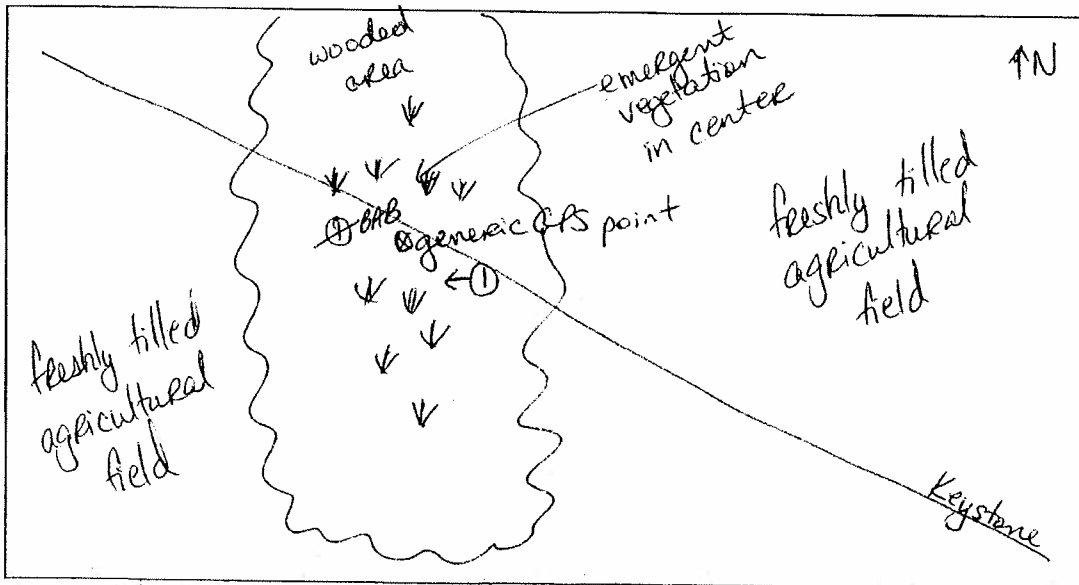 wooded
area
emergent
vegetation
in center
↑N
freshly tilled
agricultural
field
① BAB
⊗generic GPS point
←①
freshly tilled
agricultural
field
Keystone